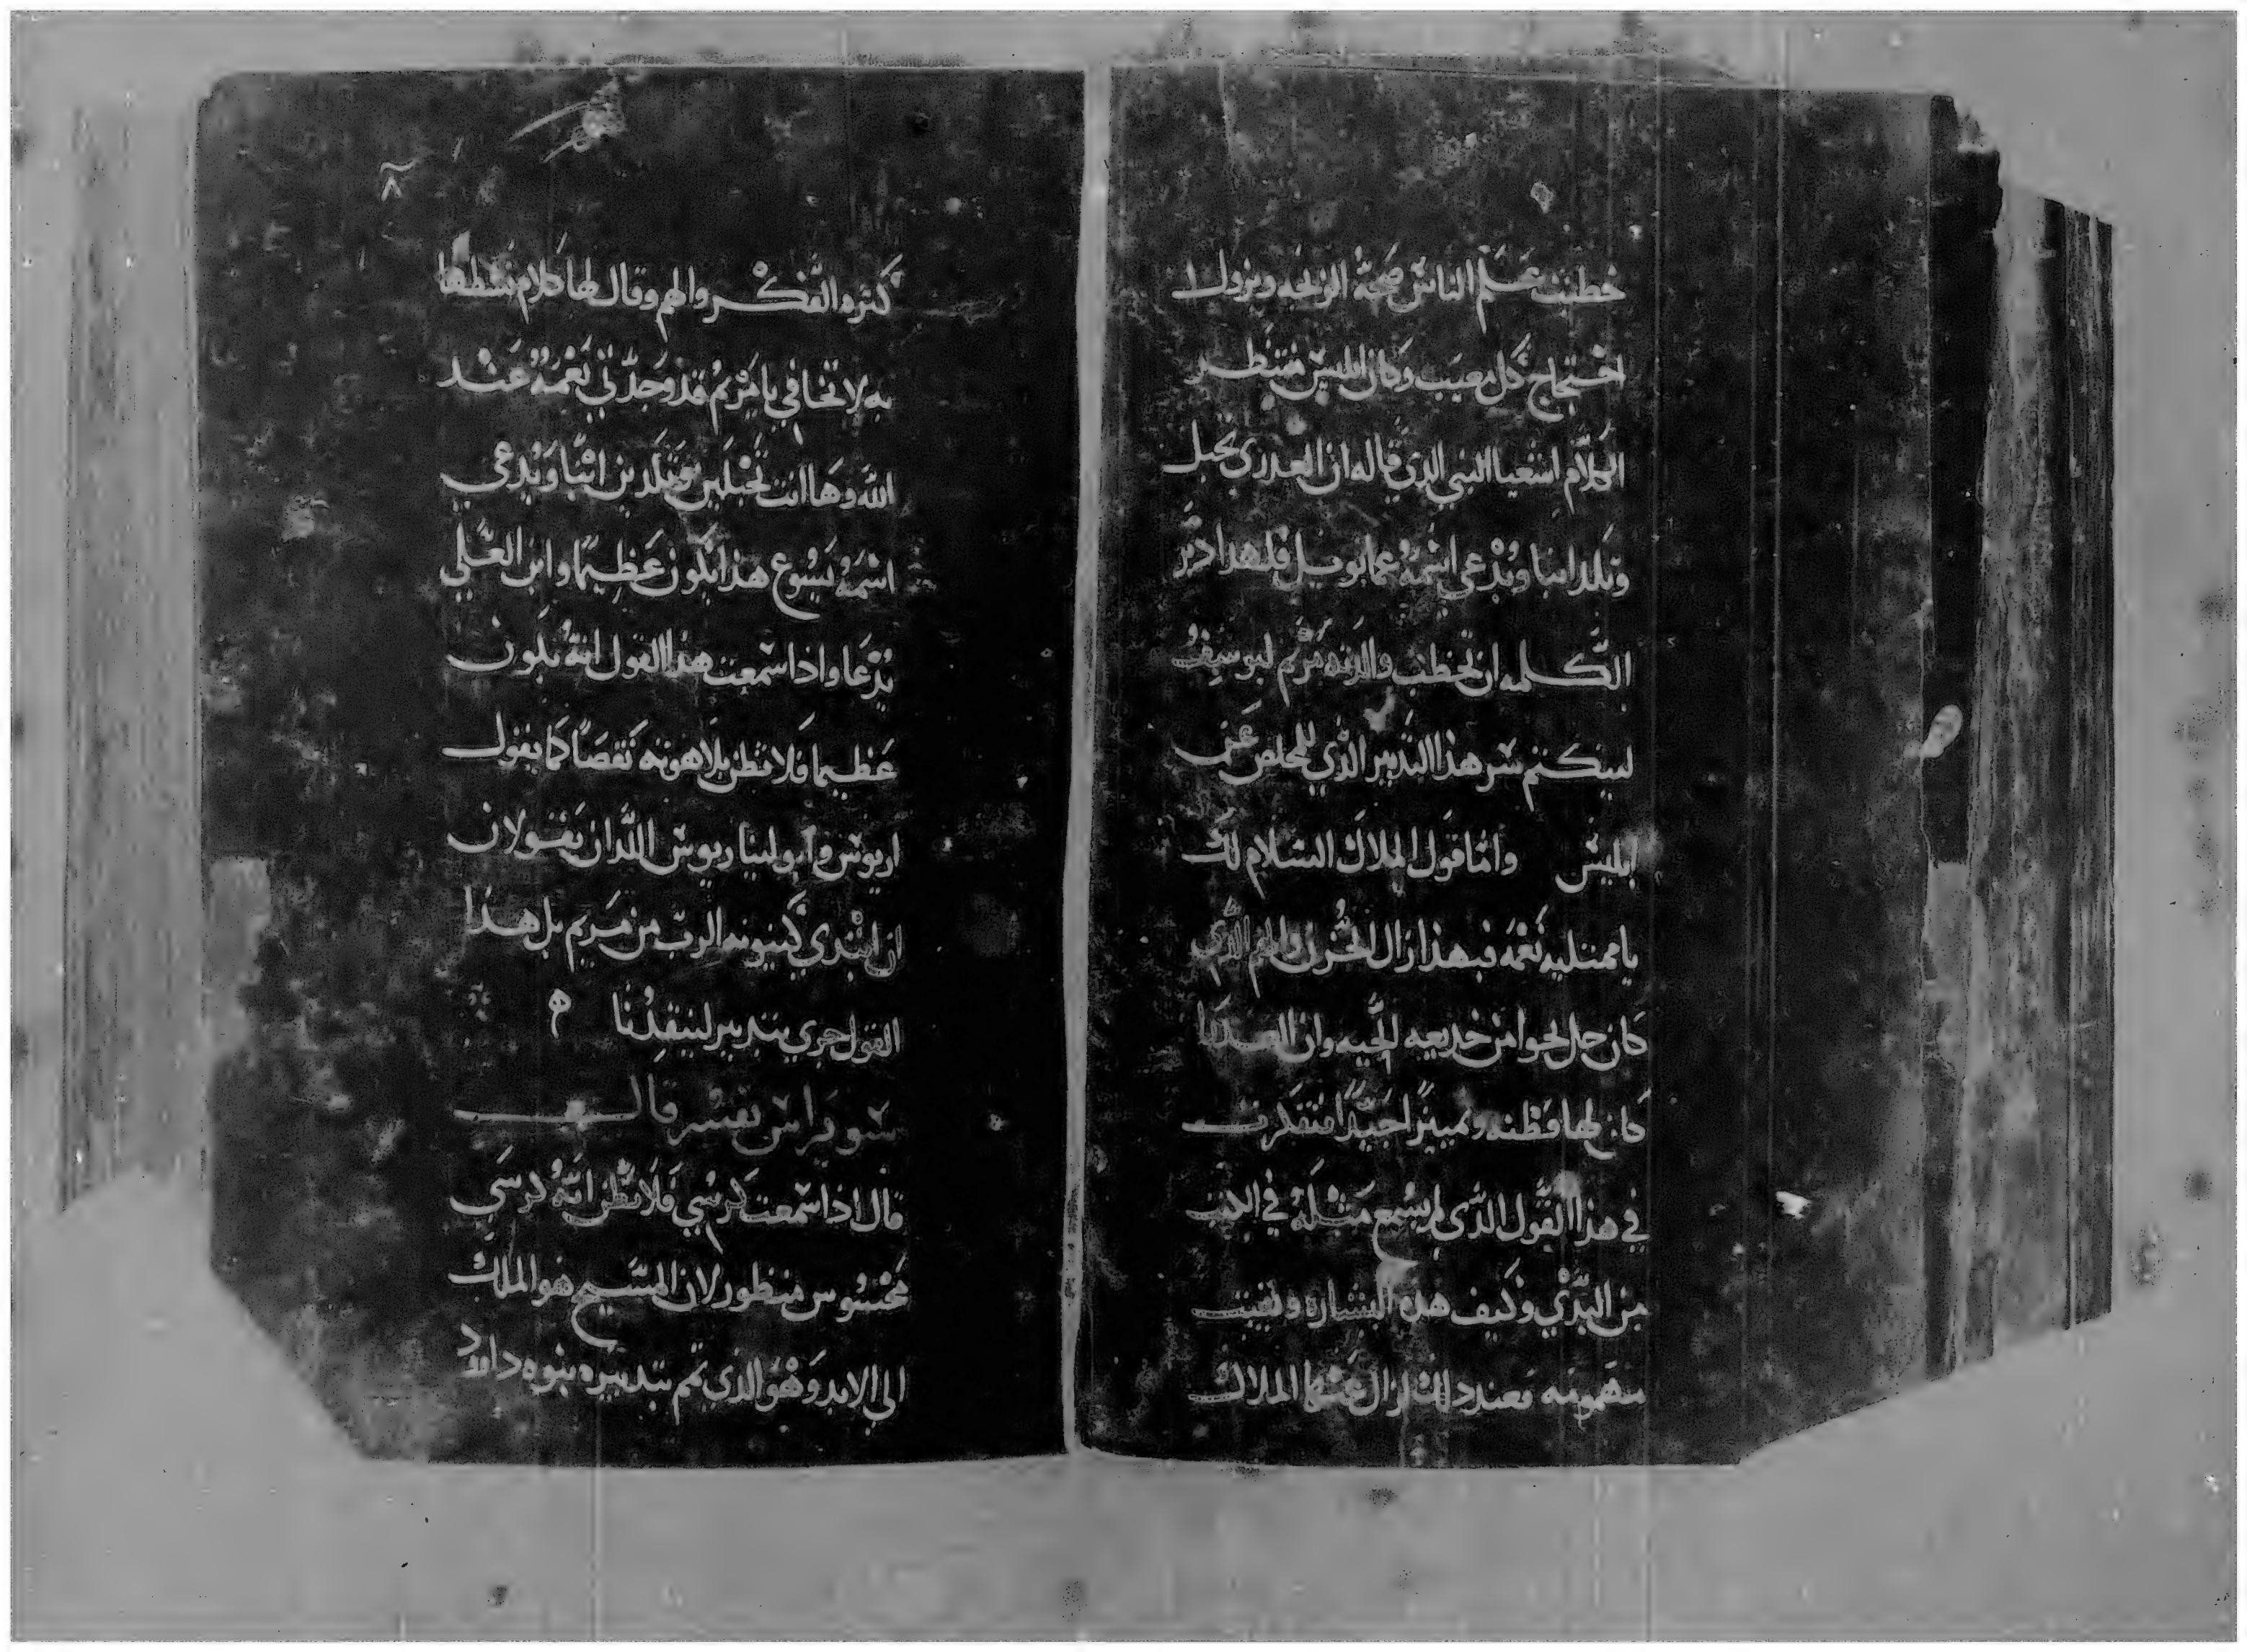 خطبت علم الناس صحة الزيجه ويزول
احتجاج كل معيب وكان ابليس منتظر
لكلام اشعيا النبي الذي قاله ان العدرى تحبل
وتلد ابنا ويدعى اسمه عمانويل فلهدا دبر
الكلمه ان تخطب والدته مريم ليوسيف
لينكتم سر هذا التدبير الذي للمخلص عن
ابليس واما قول الملاك السلام لك
يا ممتليه نعمه فبهذا ازال الحزن والهم الذي
كان حل بحوا من خديعه الحيه وان العدرا
كان لها فطنه وتمييزا جيدا فتفكرت
في هذا القول الذي لم يسمع مثله في الكتب
من البدي وكيف هذه البشاره وثبتت
مبهوته فعند دلك ازال عنها الملاك
٨
كثره التفكر والهم وقال لها كلام نشطها
به لا تخافي يا مريم قد وجدتي نعمة عند
الله وها انت تحبلين وتلدين ابنا ويدعي
اسمه يسوع هذا يكون عظيما وابن العلي
يدعا واذا سمعت هذا القول انه يكون
عظيما فلا تظن بلاهوته نقصا كما يقول
اريوس وابوليناريوس اللذان يقولان
ان ابتدي كينونه الرب من مريم بل هذا
القول جري بتدبير لينقذنا ه
سويرس يفسر قال
قال اذا سمعت كرسي فلا تظن انه كرسي
محسوس منظور لان المسيح هو الملك
الي الابد وهو الذي تمم بتدبيره بنوه داوود